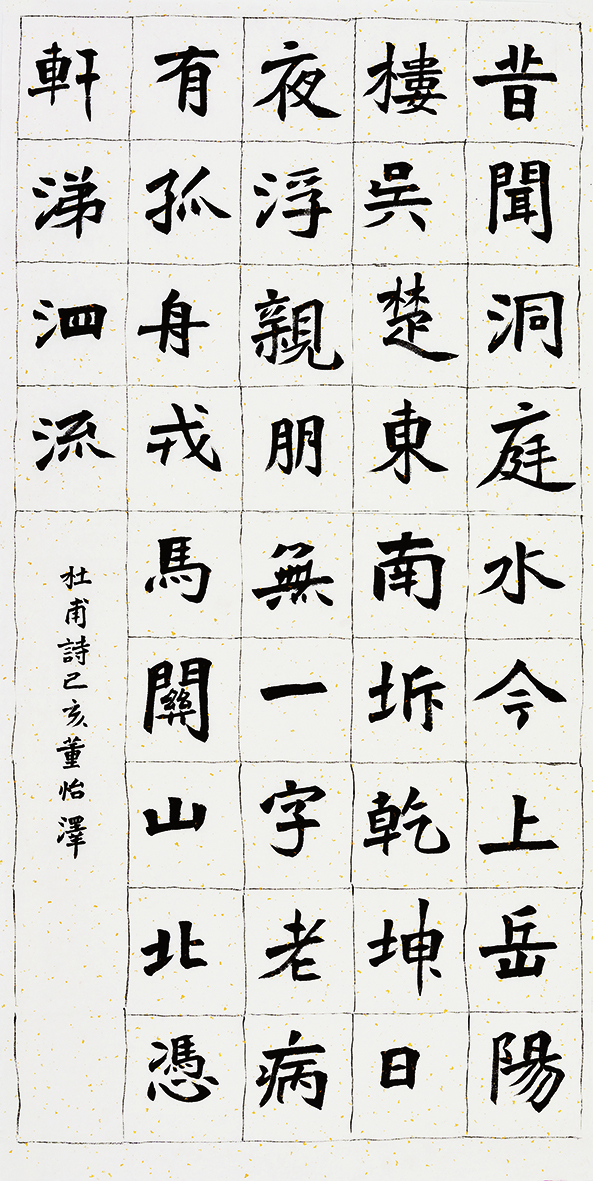 昔聞洞庭水今上岳陽
樓吳楚東南坼乾坤日
夜浮親朋無一字老病
有孤舟戎馬關山北憑
軒涕泗流
杜甫詩己亥董怡澤